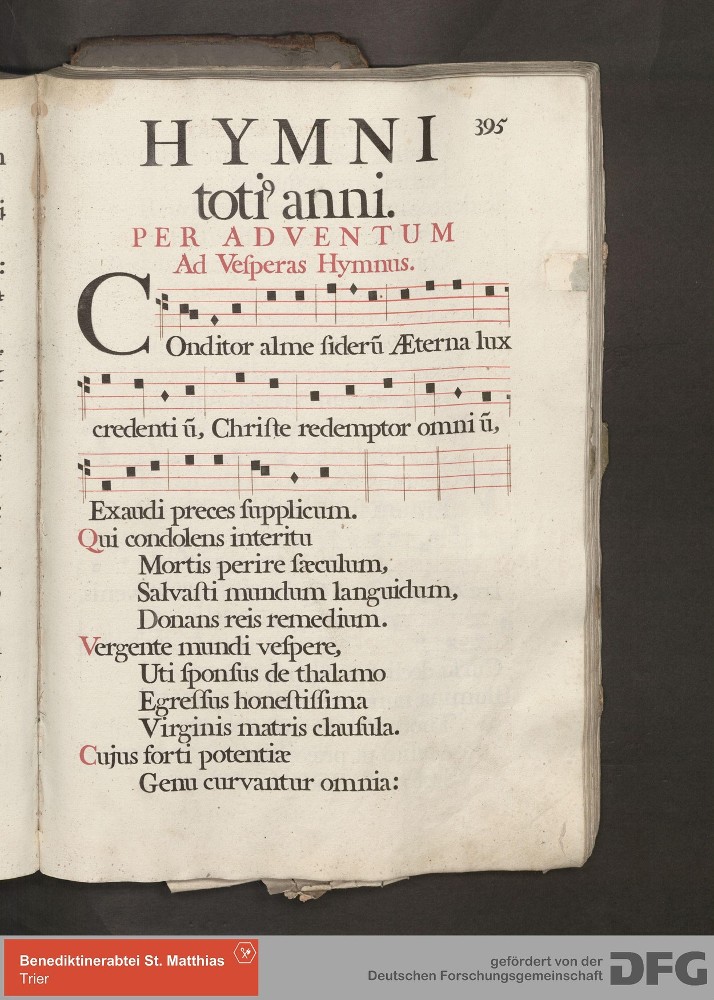 HYMNI 395
toti⁹ anni.
PER ADVENTUM
Ad Veſperas Hymnus.
COnditor alme ſiderū Æterna lux
credenti ū, Chriſte redemptor omni ū,
Exaudi preces ſupplicum.
Qui condolens interitu
Mortis perire ſæculum,
Salvaſti mundum languidum,
Donans reis remedium.
Vergente mundi veſpere,
Uti ſponſus de thalamo
Egreſſus honeſtiſſima
Virginis matris clauſula.
Cujus forti potentiæ
Genu curvantur omnia:
Benediktinerabtei St. Matthias
Trier
gefördert von der
Deutschen Forschungsgemeinschaft
DFG